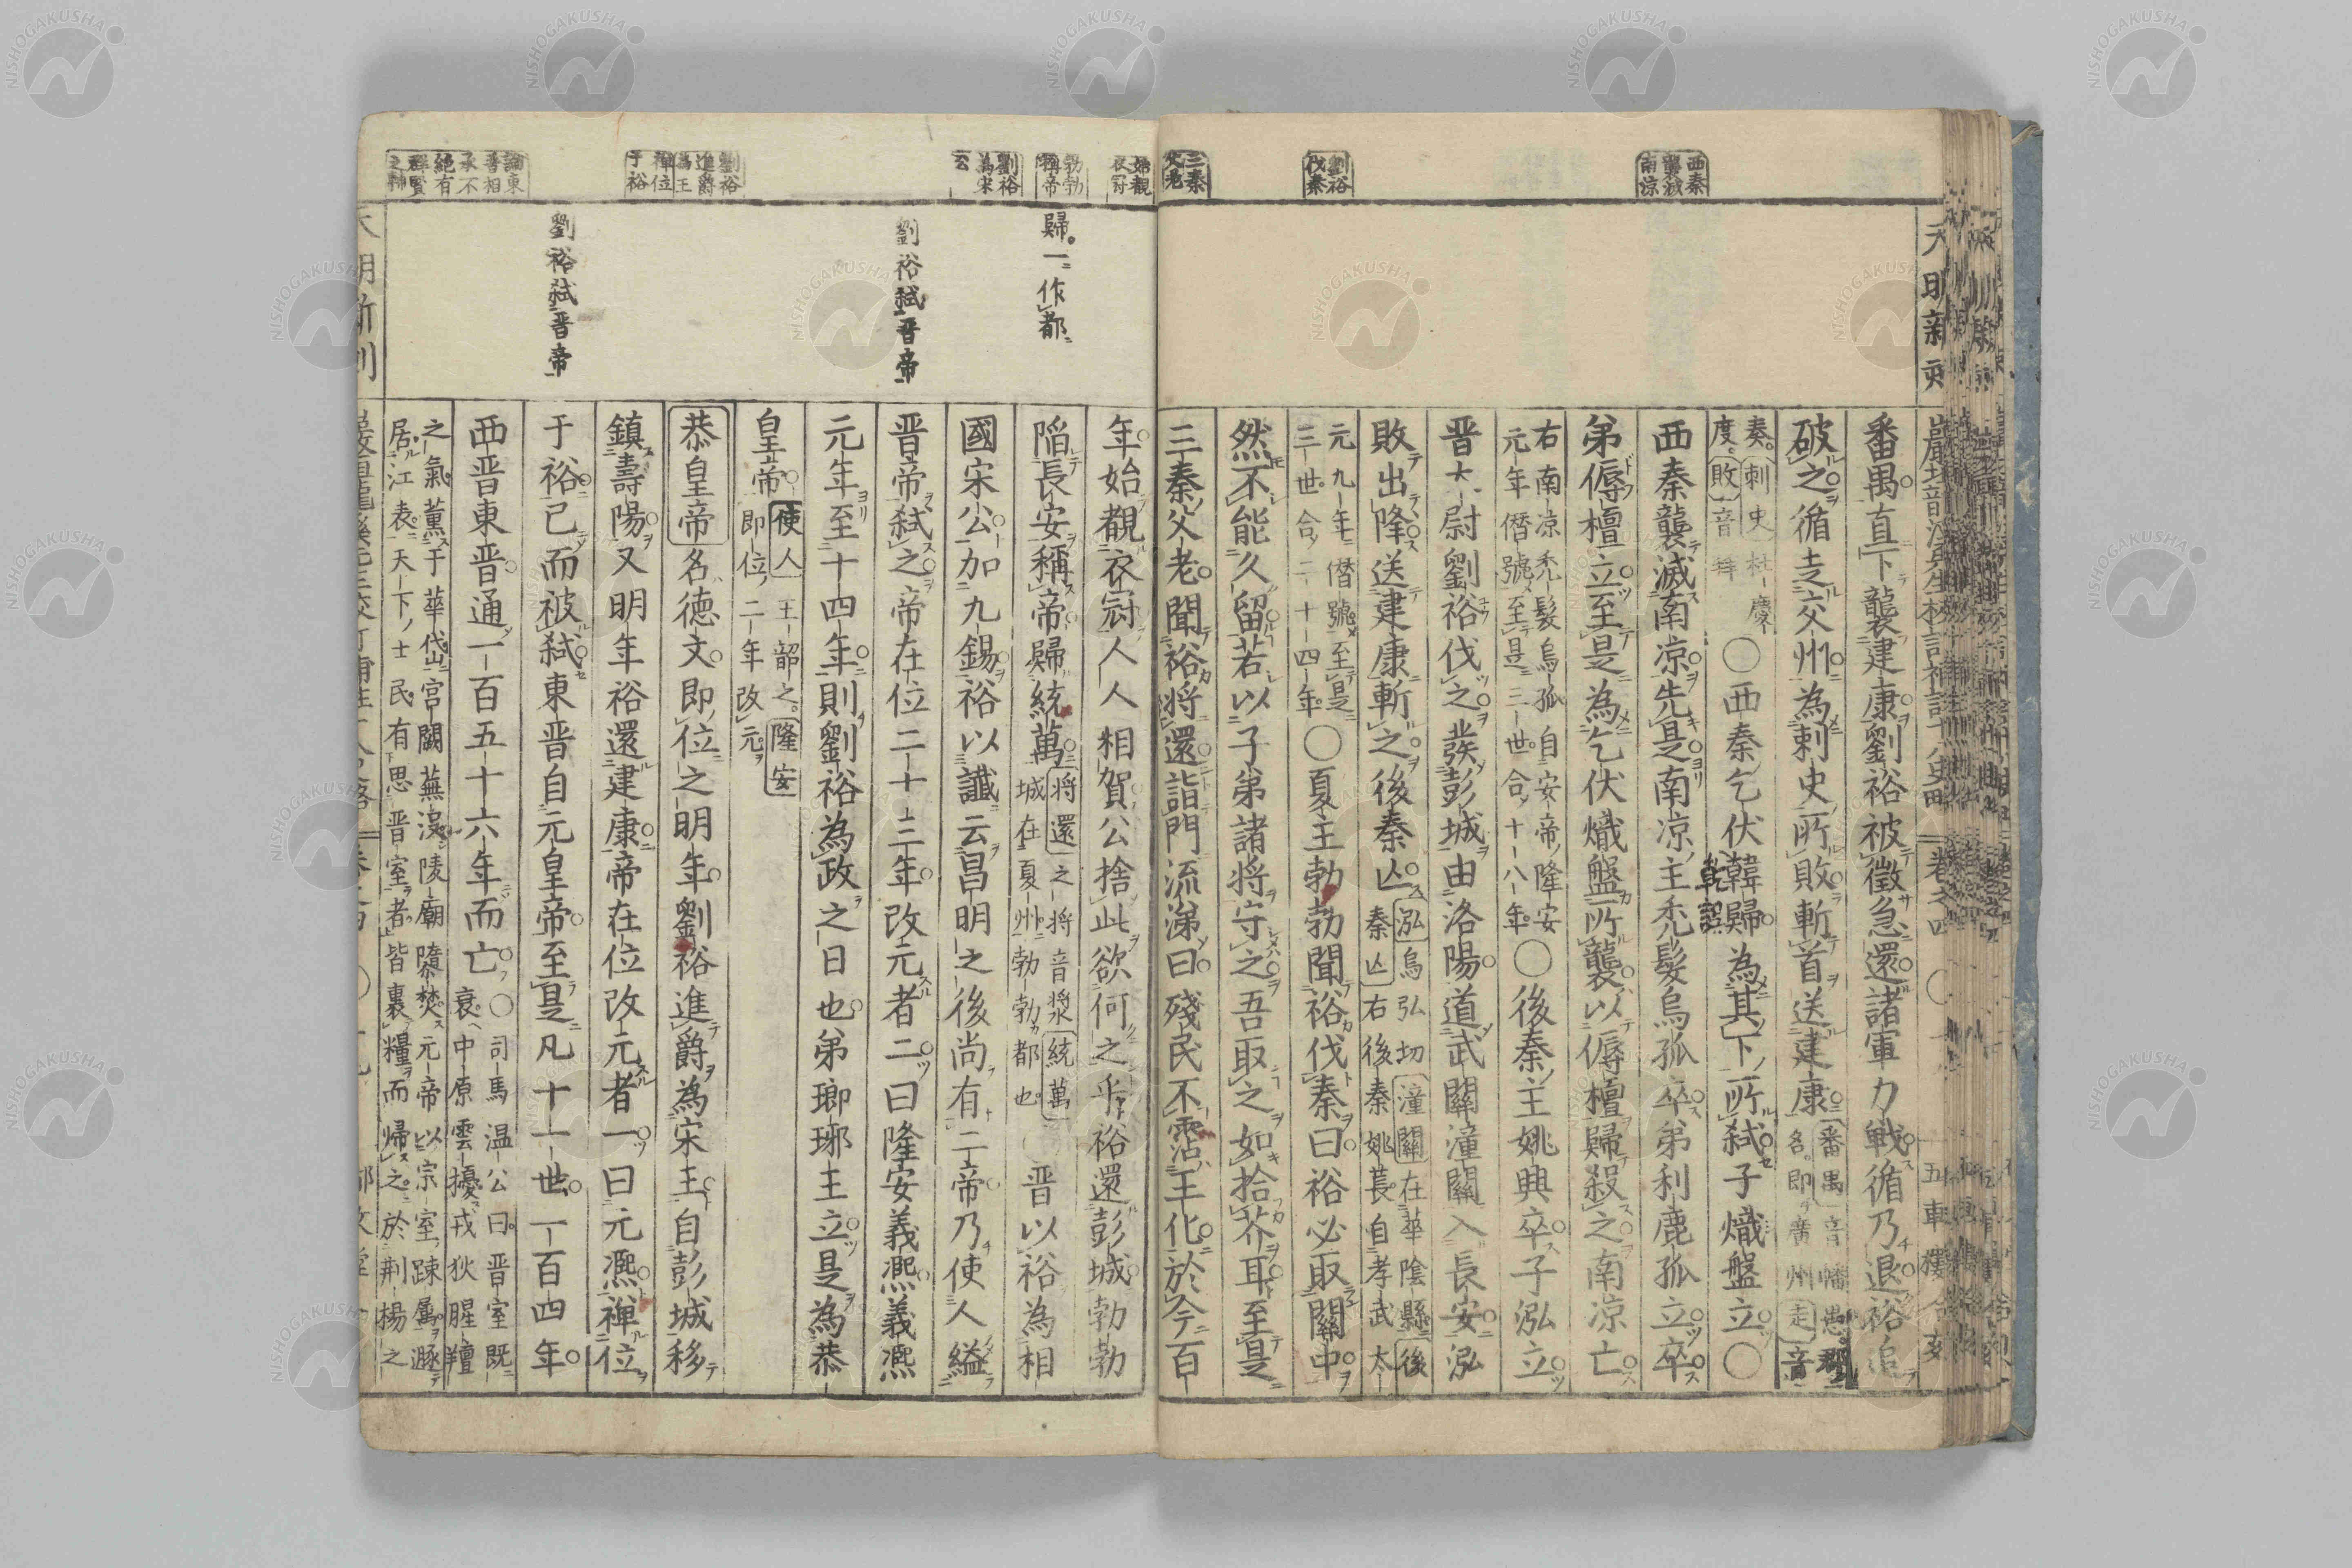 西秦
襲滅
南涼
劉裕
伐秦
三秦
父老
番禺直下襲建康劉裕被徵急還諸軍力戰循乃退裕追
破之循走交州為刺史所敗斬首送建康 番禺音幡愚郡
名即廣州走音
奏刺史杜慧
度敗音拜
〇西秦乞伏韓歸為其下所弑子熾盤立〇
乾誤
西秦襲滅南涼先是南涼主禿髮烏孤卒弟利鹿孤立卒
弟傉檀立至是為乞伏熾盤所襲以傉檀歸殺之南涼亡
右南涼禿髮烏孤自安帝隆安
元年僭號至是三世合十八年
〇後秦主姚興卒子泓立
晋大尉劉裕伐之發彭城由洛陽道武關潼關入長安泓
敗出降送建康斬之後秦亡
泓烏弘切潼關在華陰縣後
秦亡右後秦姚萇自孝武太
元九年僭號至是
三世合二十四年
〇夏主勃勃聞裕伐秦曰裕必取關中
然不能久留若以子弟諸將守之吾取之如拾芥耳至是
三秦父老聞裕將還詣門流涕曰殘民不霑王化於今百
始觀
衣冠
勃勃
稱帝
劉裕
為宋
公
劉裕
進爵
為王
禪位
于裕
論東
晋相
承不
絕有
群賢
之
歸一作都
劉裕弑晋帝
劉裕弑晋帝
年始覩衣冠人人相賀公捨此欲何之乎裕還彭城勃勃
陷長安稱帝歸統萬
將還之將音漿統萬
城在夏州勃勃都也
〇晋以裕為相
國宋公加九錫裕以讖云昌明之後尚有二帝乃使人縊
晋帝弑之帝在位二十三年改元者二曰隆安義凞義凞
元年至十四年則劉裕為政之日也弟瑯琊王立是為恭
皇帝
使人王韶之隆安
即位二年改元
恭皇帝名德文即位之明年劉裕進爵為宋王自彭城移
鎮壽陽又明年裕還建康帝在位改元者一曰元凞禪位
于裕已而被弑東晋自元皇帝至是凡十一世一百四年
西晋東晋通一百五十六年而亡
〇司馬温公曰晋室既
衰中原雲擾戎狄腥羶
之氣薫于華岱宮闕蕪没陵廟隳焚元帝以宗室踈屬遯
居江表天下士民有思晋室者皆裹糧而歸之於荆楊之